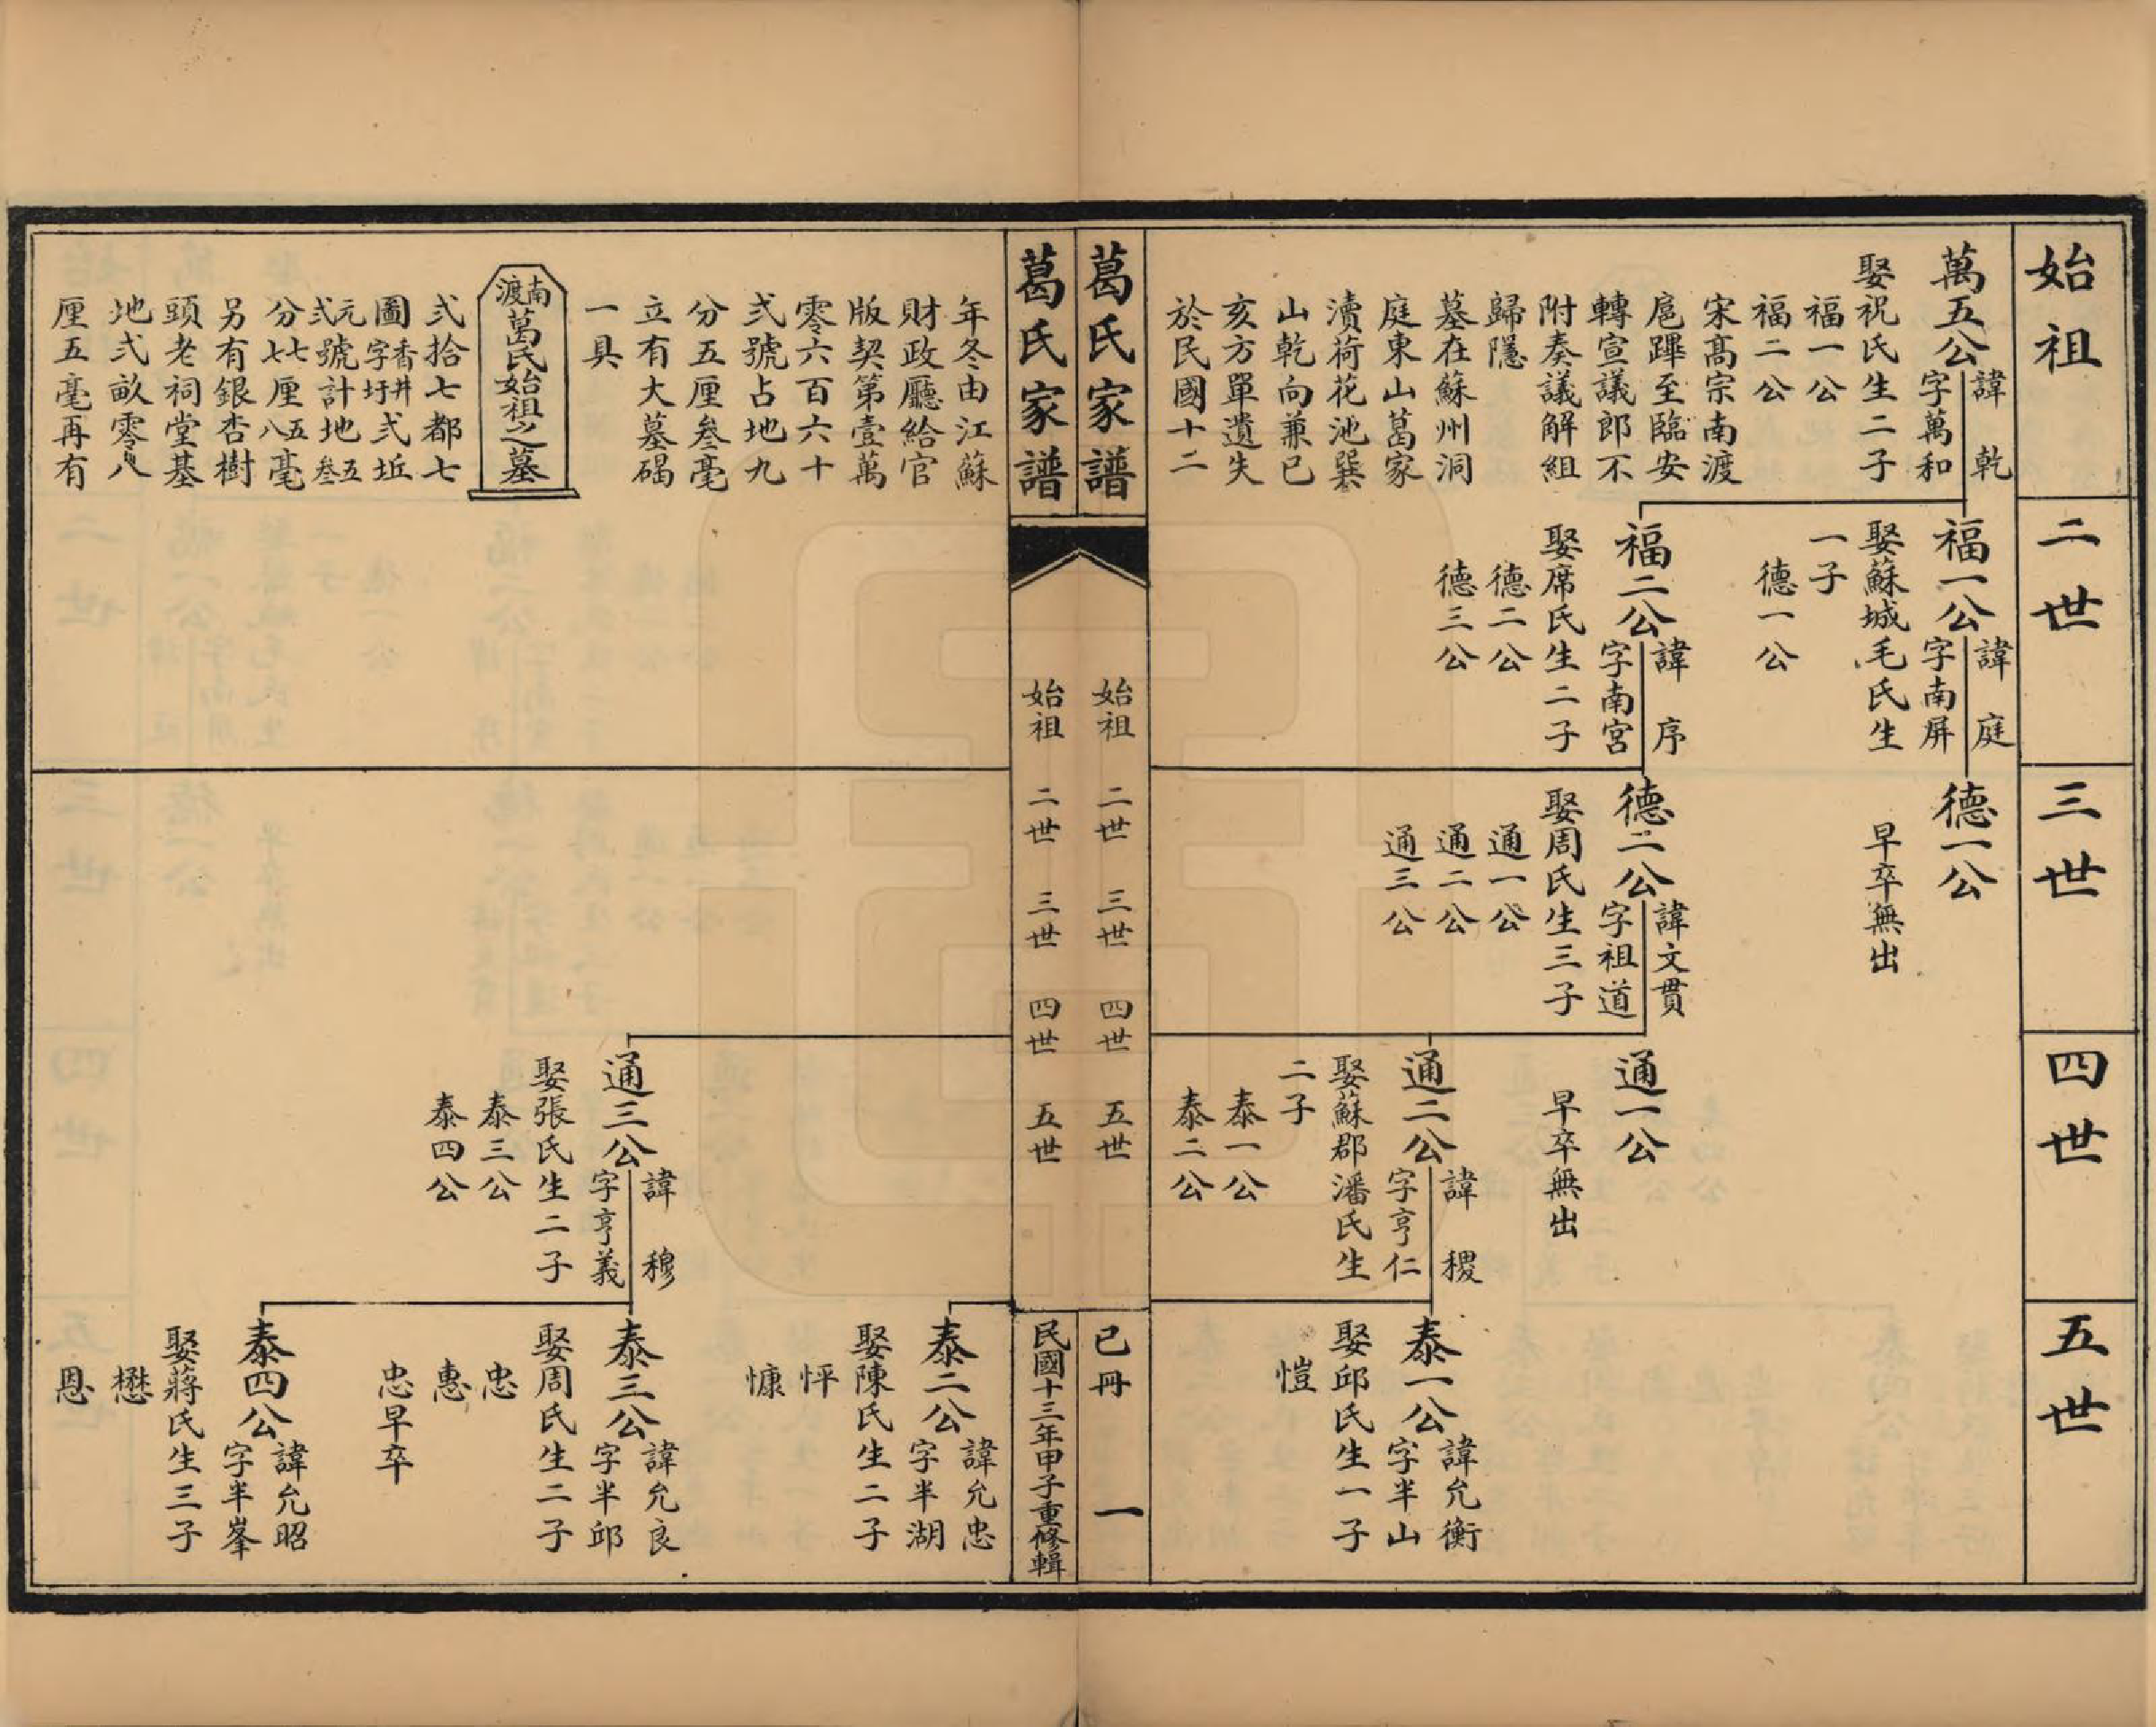 始祖
萬五公
諱乾
字萬和
娶祝氏生二子
福一公
福二公
宋高宗南渡
扈蹕至臨安
轉宣議郎不
附奏議解組
歸隱
墓在蘇州洞
庭東山葛家
瀆荷花池巽
山乾向兼巳
亥方單遺失
於民國十二
二世
福一公
諱庭
字南屏
娶蘇城毛氏生
一子
德一公
福二公
諱序
字南宮
娶席氏生二子
德二公
德三公
三世
德一公
早卒無出
德二公
諱文貫
字祖道
娶周氏生三子
通一公
通二公
通三公
四世
通一公
早卒無出
通二公
諱稷
字亨仁
娶蘇郡潘氏生
二子
泰一公
泰二公
五世
泰一公
諱允衡
字半山
娶邱氏生一子
愷
葛氏家譜
始祖 二世 三世 四世 五世
已冊 一
葛氏家譜
始祖 二世 三世 四世 五世
民國十三年甲子重修輯
年冬由江蘇
財政廳給官
版契第壹萬
零六百六十
弍號占地九
分五厘叁毫
立有大墓碣
一具
南渡葛氏始祖之墓
弍拾七都七
圖香字井圩弍坵
元弍號計地五叁
分七七厘五八毫
另有銀杏樹
頭老祠堂基
地弍畝零八
厘五毫再有
通三公
諱穆
字亨義
娶張氏生二子
泰三公
泰四公
泰二公
諱允忠
字半湖
娶陳氏生二子
怦
慷
泰三公
諱允良
字半邱
娶周氏生二子
忠
惠
忠早卒
泰四公
諱允昭
字半峯
娶蔣氏生三子
懋
恩